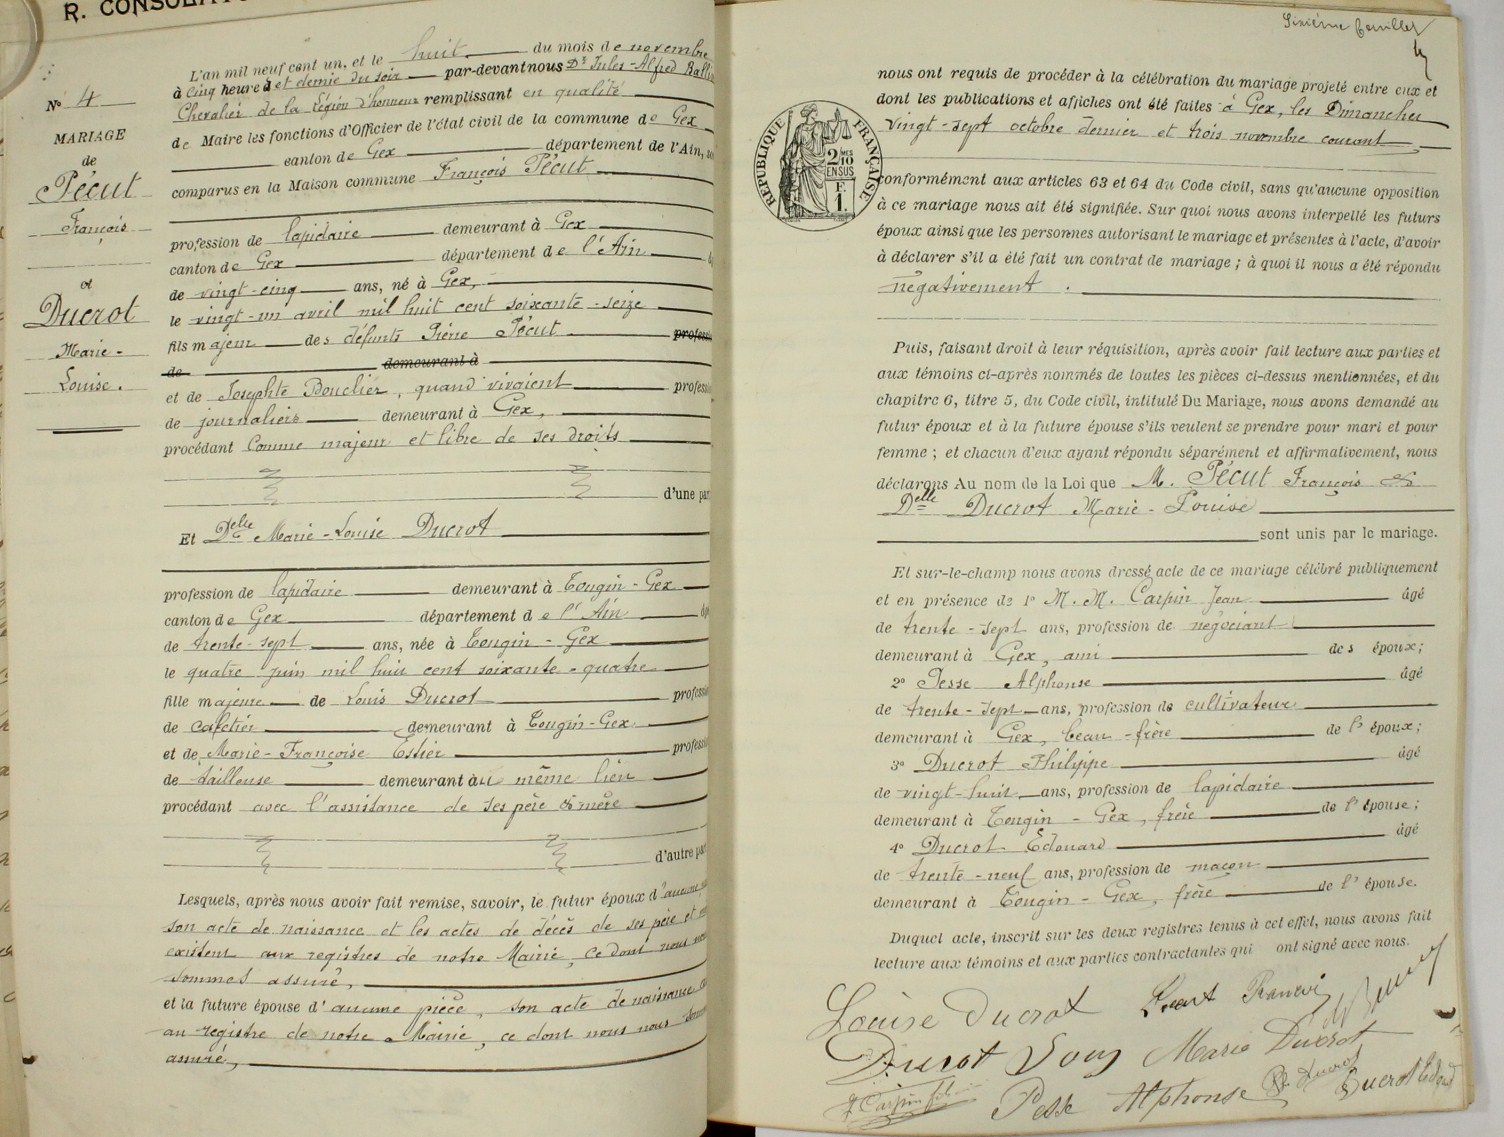 R. CONSOLAT
L'an mil neuf cent un, et le huit du mois de novembre
à cinq heures et demie du soir par-devant nous Dr Jules-Alfred
Chevalier de la Légion d'honneur remplissant en qualité
de Maire les fonctions d'Officier de l'état civil de la commune de Gex
canton de Gex département de l'Ain,
comparus en la Maison commune François Pécut
profession de lapidaire demeurant à Gex
canton de Gex département de l'Ain
de vingt-cinq ans, né à Gex,
le vingt-un avril mil huit cent soixante-seize
fils majeur des défunts Pierre Pécut
de demeurant à
et de Josephte Bouclier, quand vivaient
de journaliers demeurant à Gex,
procédant comme majeur et libre de ses droits
d'une par
Et Delle Marie-Louise Ducrot
profession de lapidaire demeurant à Tougin-Gex
canton de Gex département de l'Ain
de trente-sept ans, née à Tougin-Gex
le quatre juin mil huit cent soixante-quatre
fille majeure de Louis Ducrot
de cafetier demeurant à Tougin-Gex
et de Marie-Françoise Estier
de tailleuse demeurant au même lieu
procédant avec l'assistance de ses père & mère
d'autre par
Lesquels, après nous avoir fait remise, savoir, le futur époux d'aucune
son acte de naissance et les actes de décès de ses père et
existent aux registres de notre Mairie, ce dont nous
sommes assuré,
et la future épouse d'aucune pièce, son acte de naissance
au registre de notre Mairie, ce dont nous nous
assuré,
No 4
MARIAGE
de
Pécut
François
et
Ducrot
Marie-
Louise.
Sixième feuillet
nous ont requis de procéder à la célébration du mariage projeté entre eux et
dont les publications et affiches ont été faites à Gex, les Dimanches
vingt-sept octobre dernier et trois novembre courant,
RÉPUBLIQUE FRANÇAISE
2/10
EN SUS
F
1.
conformément aux articles 63 et 64 du Code civil, sans qu'aucune opposition
à ce mariage nous ait été signifiée. Sur quoi nous avons interpellé les futurs
époux ainsi que les personnes autorisant le mariage et présentes à l'acte, d'avoir
à déclarer s'il a été fait un contrat de mariage ; à quoi il nous a été répondu
négativement.
Puis, faisant droit à leur réquisition, après avoir fait lecture aux parties et
aux témoins ci-après nommés de toutes les pièces ci-dessus mentionnées, et du
chapitre 6, titre 5, du Code civil, intitulé Du Mariage, nous avons demandé au
futur époux et à la future épouse s'ils veulent se prendre pour mari et pour
femme ; et chacun d'eux ayant répondu séparément et affirmativement, nous
déclarons Au nom de la Loi que M. Pécut François &
Delle Ducrot Marie-Louise
sont unis par le mariage.
Et sur-le-champ nous avons dressé acte de ce mariage célébré publiquement
et en présence de 1o M.M. Carpin Jean âgé
de trente-sept ans, profession de négociant
demeurant à Gex, ami des époux;
2o Pesse Alphonse âgé
de trente-sept ans, profession de cultivateur
demeurant à Gex, beau-frère de l'époux;
3o Ducrot Philippe âgé
de vingt-huit ans, profession de lapidaire
demeurant à Tougin-Gex, frère de l'épouse;
4o Ducrot Edouard âgé
de trente-neuf ans, profession de maçon
demeurant à Tougin-Gex, frère de l'épouse.
Duquel acte, inscrit sur les deux registres tenus à cet effet, nous avons fait
lecture aux témoins et aux parties contractantes qui ont signé avec nous.
Louise Ducrot Pecut Francoi
Ducrot Louis Marie Ducrot
J Carpin fils Pesse Alphonse Ph Ducrot Ducrot Edouard